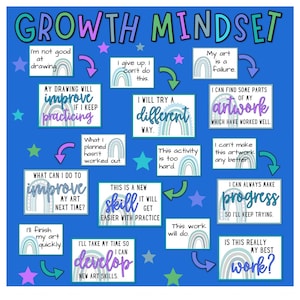 GROWTH MINDSET
I'm not good
at
drawing.
I give up. I
can't do
this.
My art
is a
failure.
MY DRAWING WILL
improve
IF I KEEP
practicing
I WILL TRY A
different
WAY.
I CAN FIND SOME PARTS
OF MY
artwork
WHICH HAVE WORKED WELL.
What I
planned
hasn't
worked out.
This activity
is too
hard.
I can't make this
artwork
any better.
WHAT CAN I DO TO
improve
MY ART
NEXT TIME?
THIS IS A NEW
skill
IT WILL
GET
EASIER WITH PRACTICE
I CAN ALWAYS MAKE
progress
SO I'LL KEEP TRYING.
I'll finish
my art
quickly.
I'LL TAKE MY TIME SO
I CAN
develop
NEW ART SKILLS.
This work
will do.
IS THIS REALLY
MY BEST
work?